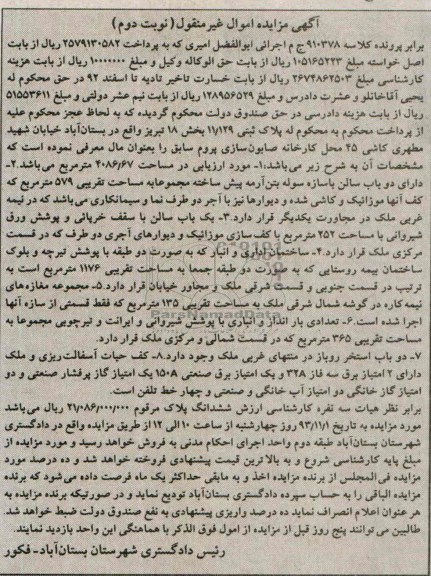 آگهی مزایده اموال غیرمنقول( نوبت دوم )
برابر پرونده کلاسه ۹۱۰۳۷۸ ج م اجرائی ابوالفضل امیری که به پرداخت ۲۵۷۹۱۳۰۵۸۲ ریال از بابت
اصل خواسته مبلغ ۱۰۵۱۶۵۲۲۳ ریال از بابت حق الوکاله وکیل و مبلغ ۱۰۰۰۰۰۰۰ ریال از بابت هزینه
کارشناسی مبلغ ۲۶۷۴۸۶۲۵۰۳ ریال از بابت خسارت تاخیر تادیه تا اسفند ۹۲ در حق محکوم له
یحیی آقاخانلو و عشرت دادرس و مبلغ ۱۲۸۹۵۶۵۲۹ ریال از بابت نیم عشر دولتی و مبلغ ۵۱۵۵۳۶۱۱
ریال از بابت هزینه دادرسی در حق صندوق دولت محکوم گردیده که به لحاظ عجز محکوم علیه
از پرداخت محکوم به محکوم له پلاک ثبتی ۱۱/۱۲۹ بخش ۱۸ تبریز واقع در بستان‌آباد خیابان شهید
مطهری کاشی ۴۵ محل کارخانه صابون‌سازی پروم سابق را بعنوان مال معرفی نموده است که
مشخصات آن به شرح زیر می‌باشد:۱- مورد ارزیابی در مساحت ۴۰۸۶/۶۷ مترمربع می‌باشد.۲-
دارای دو باب سالن باسازه سوله بتن‌آرمه پیش ساخته مجموعابه مساحت تقریبی ۵۷۹ مترمربع که
کف آنها موزائیک و کاشی شده و دیوارها نیز با آجر دو طرف نما و سیمانکاری می‌باشد که در نیمه
غربی ملک در مجاورت یکدیگر قرار دارد.۳- یک باب سالن با سقف خرپائی و پوشش ورق
شیروانی با مساحت ۲۵۲ مترمربع با کف‌سازی موزائیک و دیوارهای آجری دو طرف که در قسمت
مرکزی ملک قرار دارد.۴- ساختمان اداری و انبار که به صورت دو طبقه با پوشش تیرچه و بلوک
ساختمان نیمه روستایی که به صورت دو طبقه جمعا به مساحت تقریبی ۱۱۷۶ مترمربع است به
ترتیب در قسمت جنوبی و قسمت شرقی ملک و مجاور خیابان قرار دارد.۵- مجموعه مغازه‌های
نیمه کاره در گوشه شمال شرقی ملک به مساحت تقریبی ۱۳۵ مترمربع که فقط قسمتی از سازه آنها
اجرا شده است.۶- تعدادی بار انداز و انباری با پوشش شیروانی و ایرانت و تیرچوبی مجموعا به
مساحت تقریبی ۳۶۵ مترمربع که در قسمت شمالی و مرکزی ملک قرار دارد.
۷- دو باب استخر روباز در منتهای غربی ملک وجود دارد.۸- کف حیات آسفالت‌ریزی و ملک
دارای ۲ امتیاز برق سه فاز ۳۲A و یک امتیاز برق صنعتی ۱۵۰A یک امتیاز گاز پرفشار صنعتی و دو
امتیاز گاز خانگی دو امتیاز آب خانگی و صنعتی و چهار خط تلفن است.
برابر نظر هیات سه نفره کارشناسی ارزش ششدانگ پلاک مرقوم ۲۱/۰۸۶/۰۰۰/۰۰۰ ریال می‌باشد
مورد مزایده به تاریخ ۹۳/۱۱/۱ روز چهارشنبه از ساعت ۱۰ الی ۱۲ از طریق مزایده واقع در دادگستری
شهرستان بستان‌آباد طبقه دوم واحد اجرای احکام مدنی به فروش خواهد رسید و مورد مزایده از
مبلغ پایه کارشناسی شروع و به بالاترین قیمت پیشنهادی فروخته خواهد شد و ده درصد مورد
مزایده فی المجلس از برنده مزایده اخذ و به مابقی حداکثر یک ماه فرصت داده می‌شود که برنده
مزایده الباقی را به حساب سپرده دادگستری بستان‌آباد تودیع نماید و در صورتیکه برنده مزایده به
هر عنوان اعلام انصراف نماید ده درصد واریزی پیشنهادی به نفع صندوق دولت ضبط خواهد شد.
طالبین می توانند پنج روز قبل از مزایده از امول فوق الذکر با هماهنگی این واحد بازدید نمایند.
رئیس دادگستری شهرستان بستان‌آباد- فکور